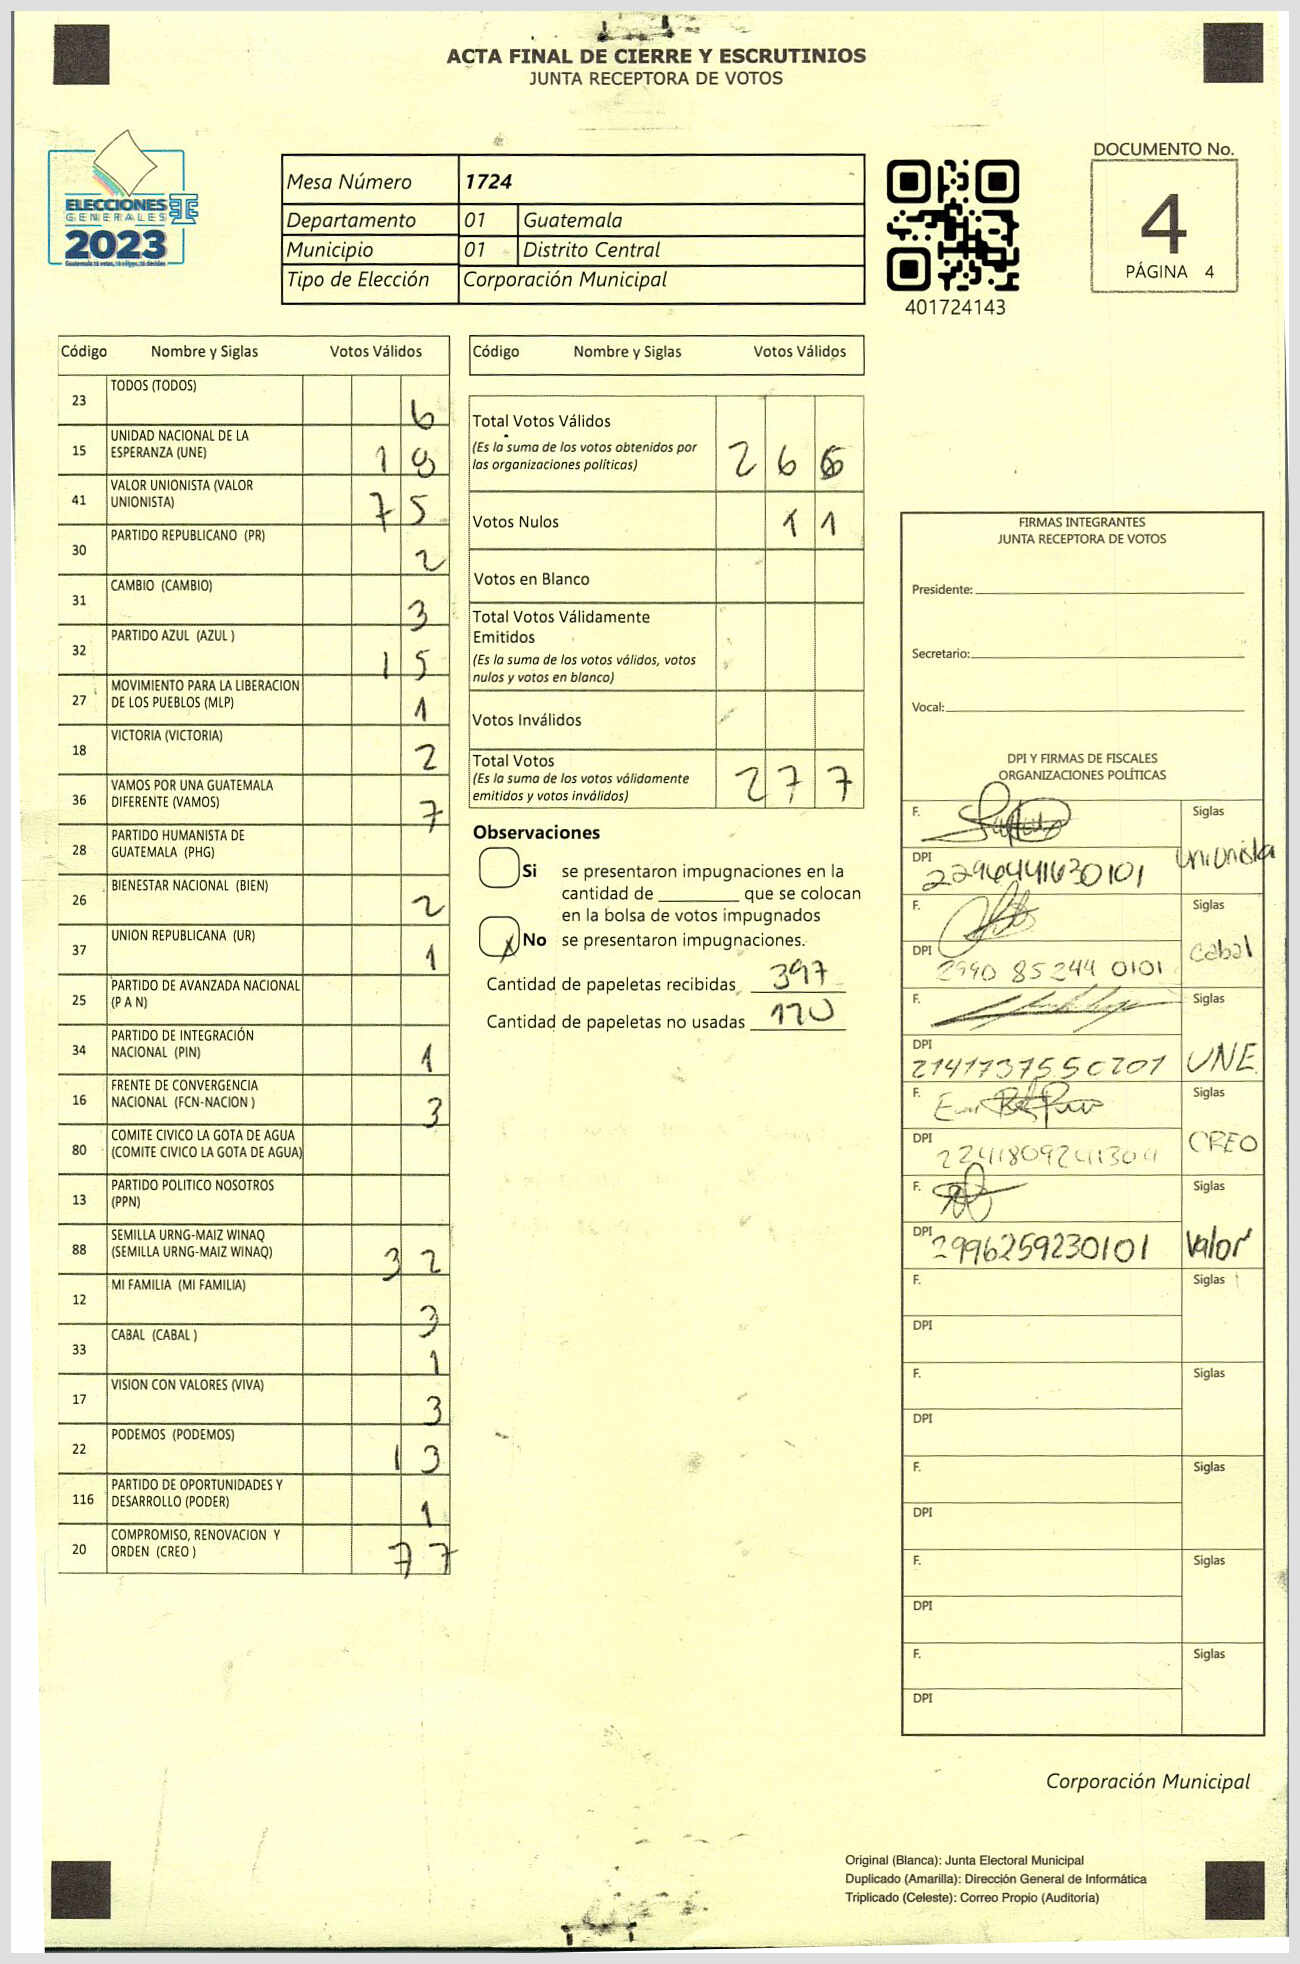 ACTA FINAL DE CIERRE Y ESCRUTINIOS
JUNTA RECEPTORA DE VOTOS
ELECCIONES
GENERALES
2023
Mesa Número 1724
Departamento 01 Guatemala
Municipio 01 Distrito Central
Tipo de Elección Corporación Municipal
401724143
DOCUMENTO No.
4
PÁGINA 4
Código Nombre y Siglas Votos Válidos
23 TODOS (TODOS) 6
15 UNIDAD NACIONAL DE LA
ESPERANZA (UNE) 18
41 VALOR UNIONISTA (VALOR
UNIONISTA) 75
30 PARTIDO REPUBLICANO (PR) 2
31 CAMBIO (CAMBIO) 3
32 PARTIDO AZUL (AZUL ) 15
27 MOVIMIENTO PARA LA LIBERACION
DE LOS PUEBLOS (MLP) 1
18 VICTORIA (VICTORIA) 2
36 VAMOS POR UNA GUATEMALA
DIFERENTE (VAMOS) 7
28 PARTIDO HUMANISTA DE
GUATEMALA (PHG)
26 BIENESTAR NACIONAL (BIEN) 2
37 UNION REPUBLICANA (UR) 1
25 PARTIDO DE AVANZADA NACIONAL
(P A N)
34 PARTIDO DE INTEGRACIÓN
NACIONAL (PIN) 1
16 FRENTE DE CONVERGENCIA
NACIONAL (FCN-NACION ) 3
80 COMITE CIVICO LA GOTA DE AGUA
(COMITE CIVICO LA GOTA DE AGUA)
13 PARTIDO POLITICO NOSOTROS
(PPN)
88 SEMILLA URNG-MAIZ WINAQ
(SEMILLA URNG-MAIZ WINAQ) 32
12 MI FAMILIA (MI FAMILIA) 3
33 CABAL (CABAL ) 1
17 VISION CON VALORES (VIVA) 3
22 PODEMOS (PODEMOS) 13
116 PARTIDO DE OPORTUNIDADES Y
DESARROLLO (PODER) 1
20 COMPROMISO, RENOVACION Y
ORDEN (CREO ) 77
Código Nombre y Siglas Votos Válidos
Total Votos Válidos
(Es la suma de los votos obtenidos por
las organizaciones políticas) 266
Votos Nulos 11
Votos en Blanco
Total Votos Válidamente
Emitidos
(Es la suma de los votos válidos, votos
nulos y votos en blanco)
Votos Inválidos
Total Votos
(Es la suma de los votos válidamente
emitidos y votos inválidos) 277
Observaciones
Si se presentaron impugnaciones en la
cantidad de ________ que se colocan
en la bolsa de votos impugnados
X No se presentaron impugnaciones.
Cantidad de papeletas recibidas 397
Cantidad de papeletas no usadas 120
FIRMAS INTEGRANTES
JUNTA RECEPTORA DE VOTOS
Presidente:
Secretario:
Vocal:
DPI Y FIRMAS DE FISCALES
ORGANIZACIONES POLÍTICAS
F. Siglas
DPI 2296441630101 Unionista
F. Siglas
DPI 2990 85244 0101 Cabal
F. Siglas
DPI 2141737550701 UNE
F. Siglas
DPI 2241809241304 CREO
F. Siglas
DPI 2996259230101 Valor
F. Siglas
DPI
F. Siglas
DPI
F. Siglas
DPI
F. Siglas
DPI
F. Siglas
DPI
Corporación Municipal
Original (Blanca): Junta Electoral Municipal
Duplicado (Amarilla): Dirección General de Informática
Triplicado (Celeste): Correo Propio (Auditoría)